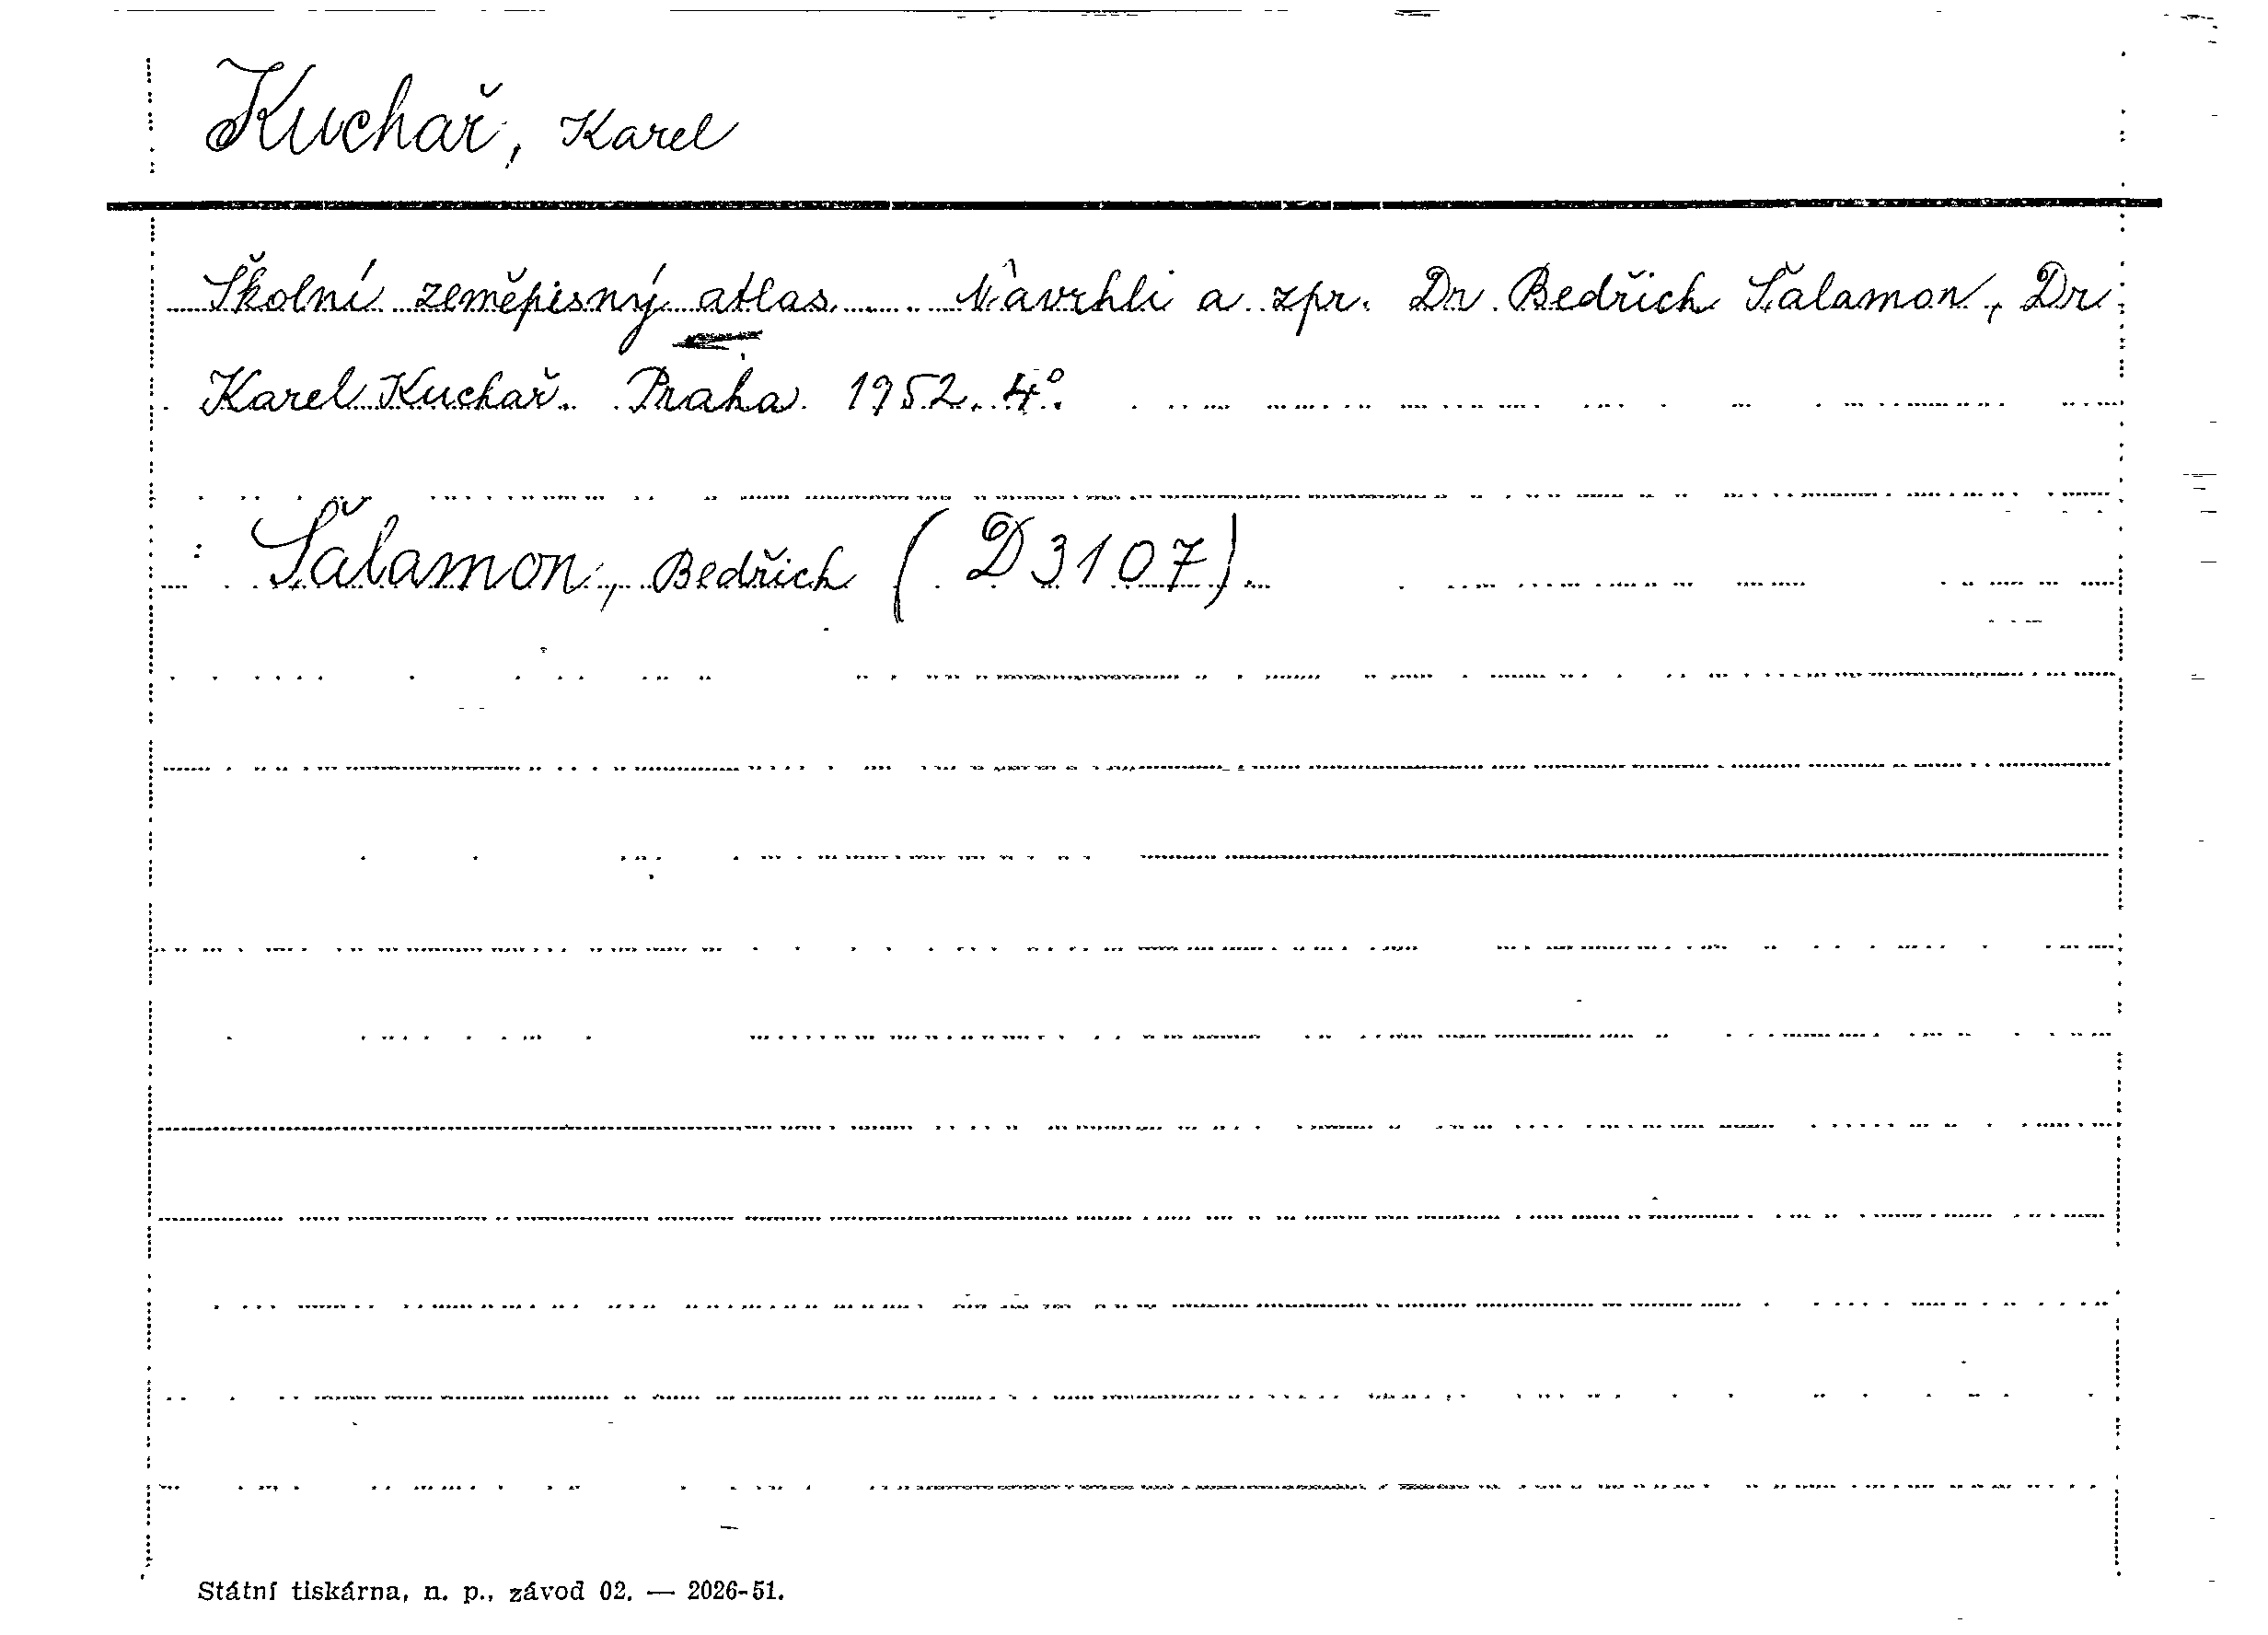 Kuchař, Karel
Školní zeměpisný atlas... Navrhli a zpr. Dr. Bedřich Šalamon, Dr
Karel Kuchař. Praha 1952. 4°.
: Šalamon, Bedřich (D 3107)
Státní tiskárna, n. p., závod 02. — 2026-51.